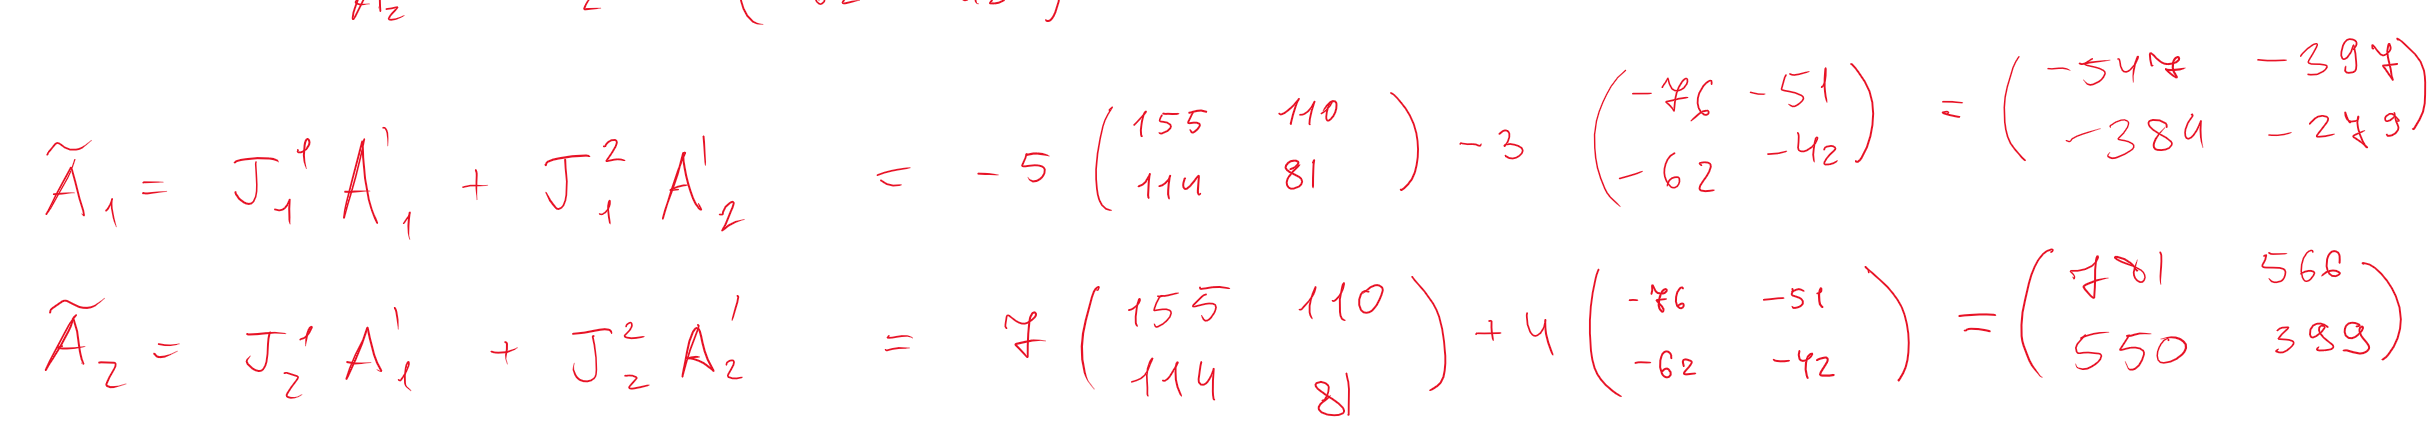 A₂ 2
Ã₁ = J₁¹ A'₁ + J₁² A'₂ = - 5 ( 155 110 ; 114 81 ) - 3 ( -76 -51 ; -62 -42 ) = ( -547 -397 ; -384 -279 )
Ã₂ = J₂¹ A'₁ + J₂² A'₂ = 7 ( 155 110 ; 114 81 ) + 4 ( -76 -51 ; -62 -42 ) = ( 781 566 ; 550 399 )